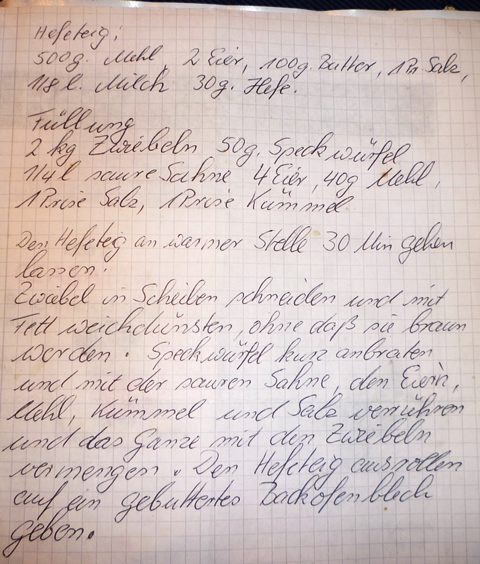 Hefeteig:
500g. Mehl, 2 Eier, 100g. Butter, 1 Pr. Salz,
1/8 l. Milch 30g. Hefe.
Füllung
2 kg Zwiebeln 50g. Speckwürfel
1/4 l saure Sahne 4 Eier, 40g Mehl,
1 Prise Salz, 1 Prise Kümmel
Den Hefeteig an warmer Stelle 30 Min gehen
lassen.
Zwiebel in Scheiben schneiden und mit
Fett weichdünsten, ohne daß sie braun
werden. Speckwürfel kurz anbraten
und mit der sauren Sahne, den Eiern,
Mehl, Kümmel und Salz verrühren
und das Ganze mit den Zwiebeln
vermengen. Den Hefeteig ausrollen
auf ein gebuttertes Backofenblech
geben.